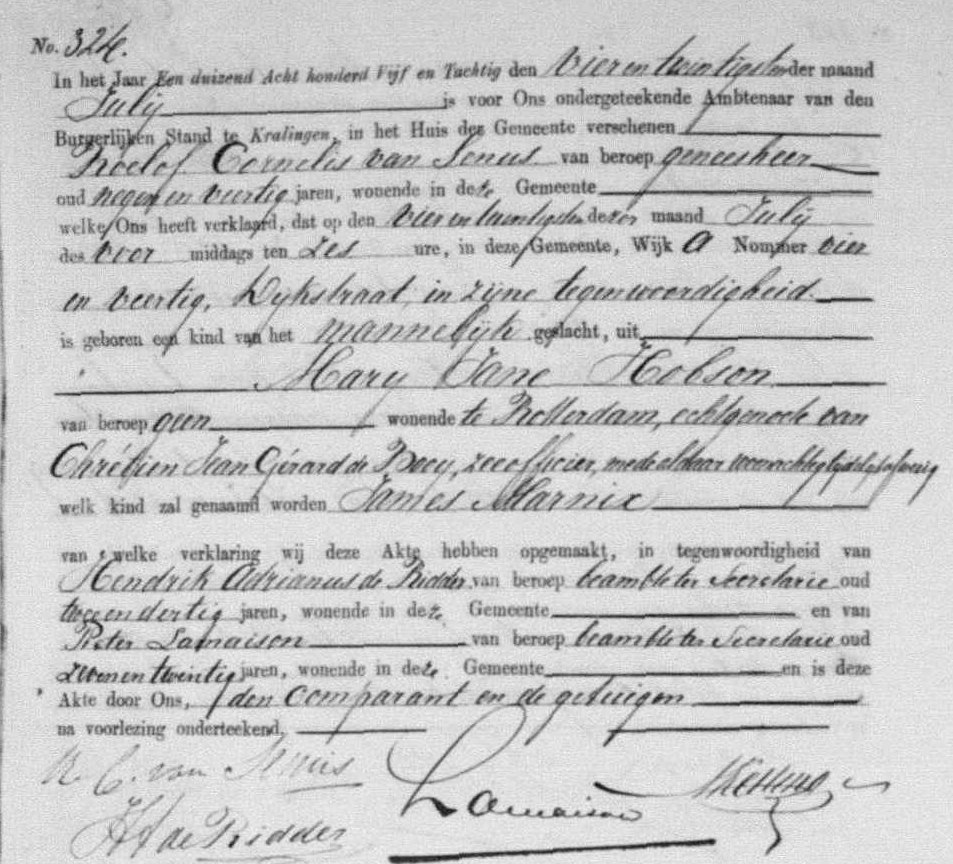 No. 324.
In het Jaar Een duizend Acht honderd Vijf en Tachtig den Vier en twintigsten der maand
July is voor Ons ondergeteekende Ambtenaar van den
Burgerlijken Stand te Kralingen, in het Huis der Gemeente verschenen
Roelof Cornelis van van beroep geneesheer
oud negen en veertig jaren, wonende in deze Gemeente
welke Ons heeft verklaard, dat op den vier en twintigsten dezer maand July
des voor middags ten zes ure, in deze Gemeente, Wijk A Nommer vier
en veertig, Dijkstraat, in zijne tegenwoordigheid
is geboren een kind van het mannelijk geslacht, uit
Mary Jane Hobson
van beroep geen wonende te Rotterdam, echtgenoote van
Chrétien Jean Gérard de Booy, zeeofficier, mede aldaar woonachtig tijdelijk afwezig
welk kind zal genaamd worden James Marnix
van welke verklaring wij deze Akte hebben opgemaakt, in tegenwoordigheid van
Hendrik Adrianus de Ridder van beroep beambte ter Secretarie oud
twee en dertig jaren, wonende in deze Gemeente en van
Pieter Lamaison van beroep beambte ter Secretarie oud
twintig jaren, wonende in deze Gemeente en is deze
Akte door Ons, den comparant en de getuigen
na voorlezing onderteekend,
R. C. van
Lamaison
HA de Ridder